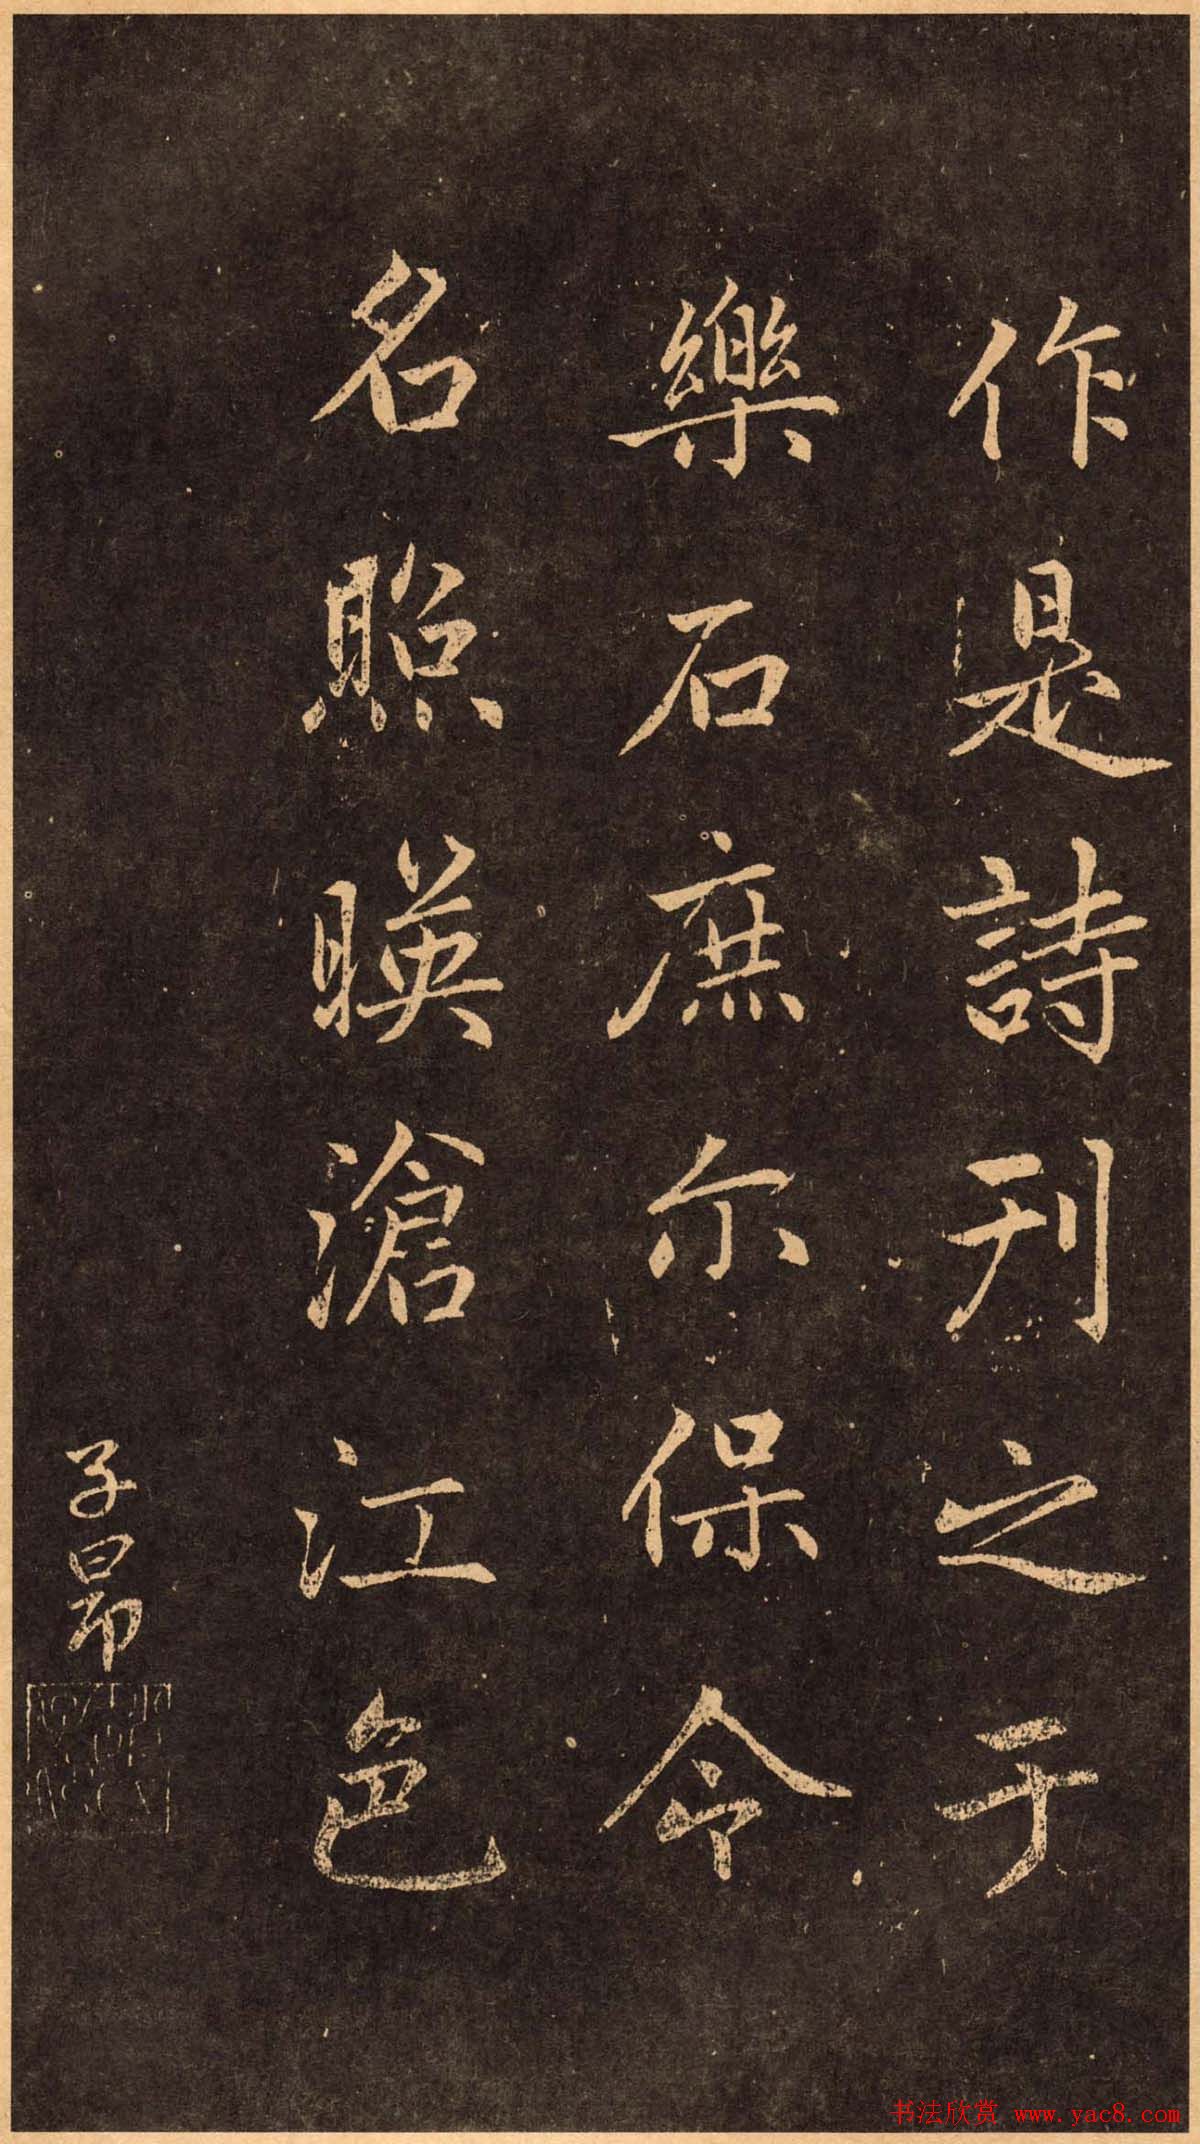 作是詩刊之于
樂石庶尔保令
名照暎滄江色
子昂
书法欣赏 www.yac8.com